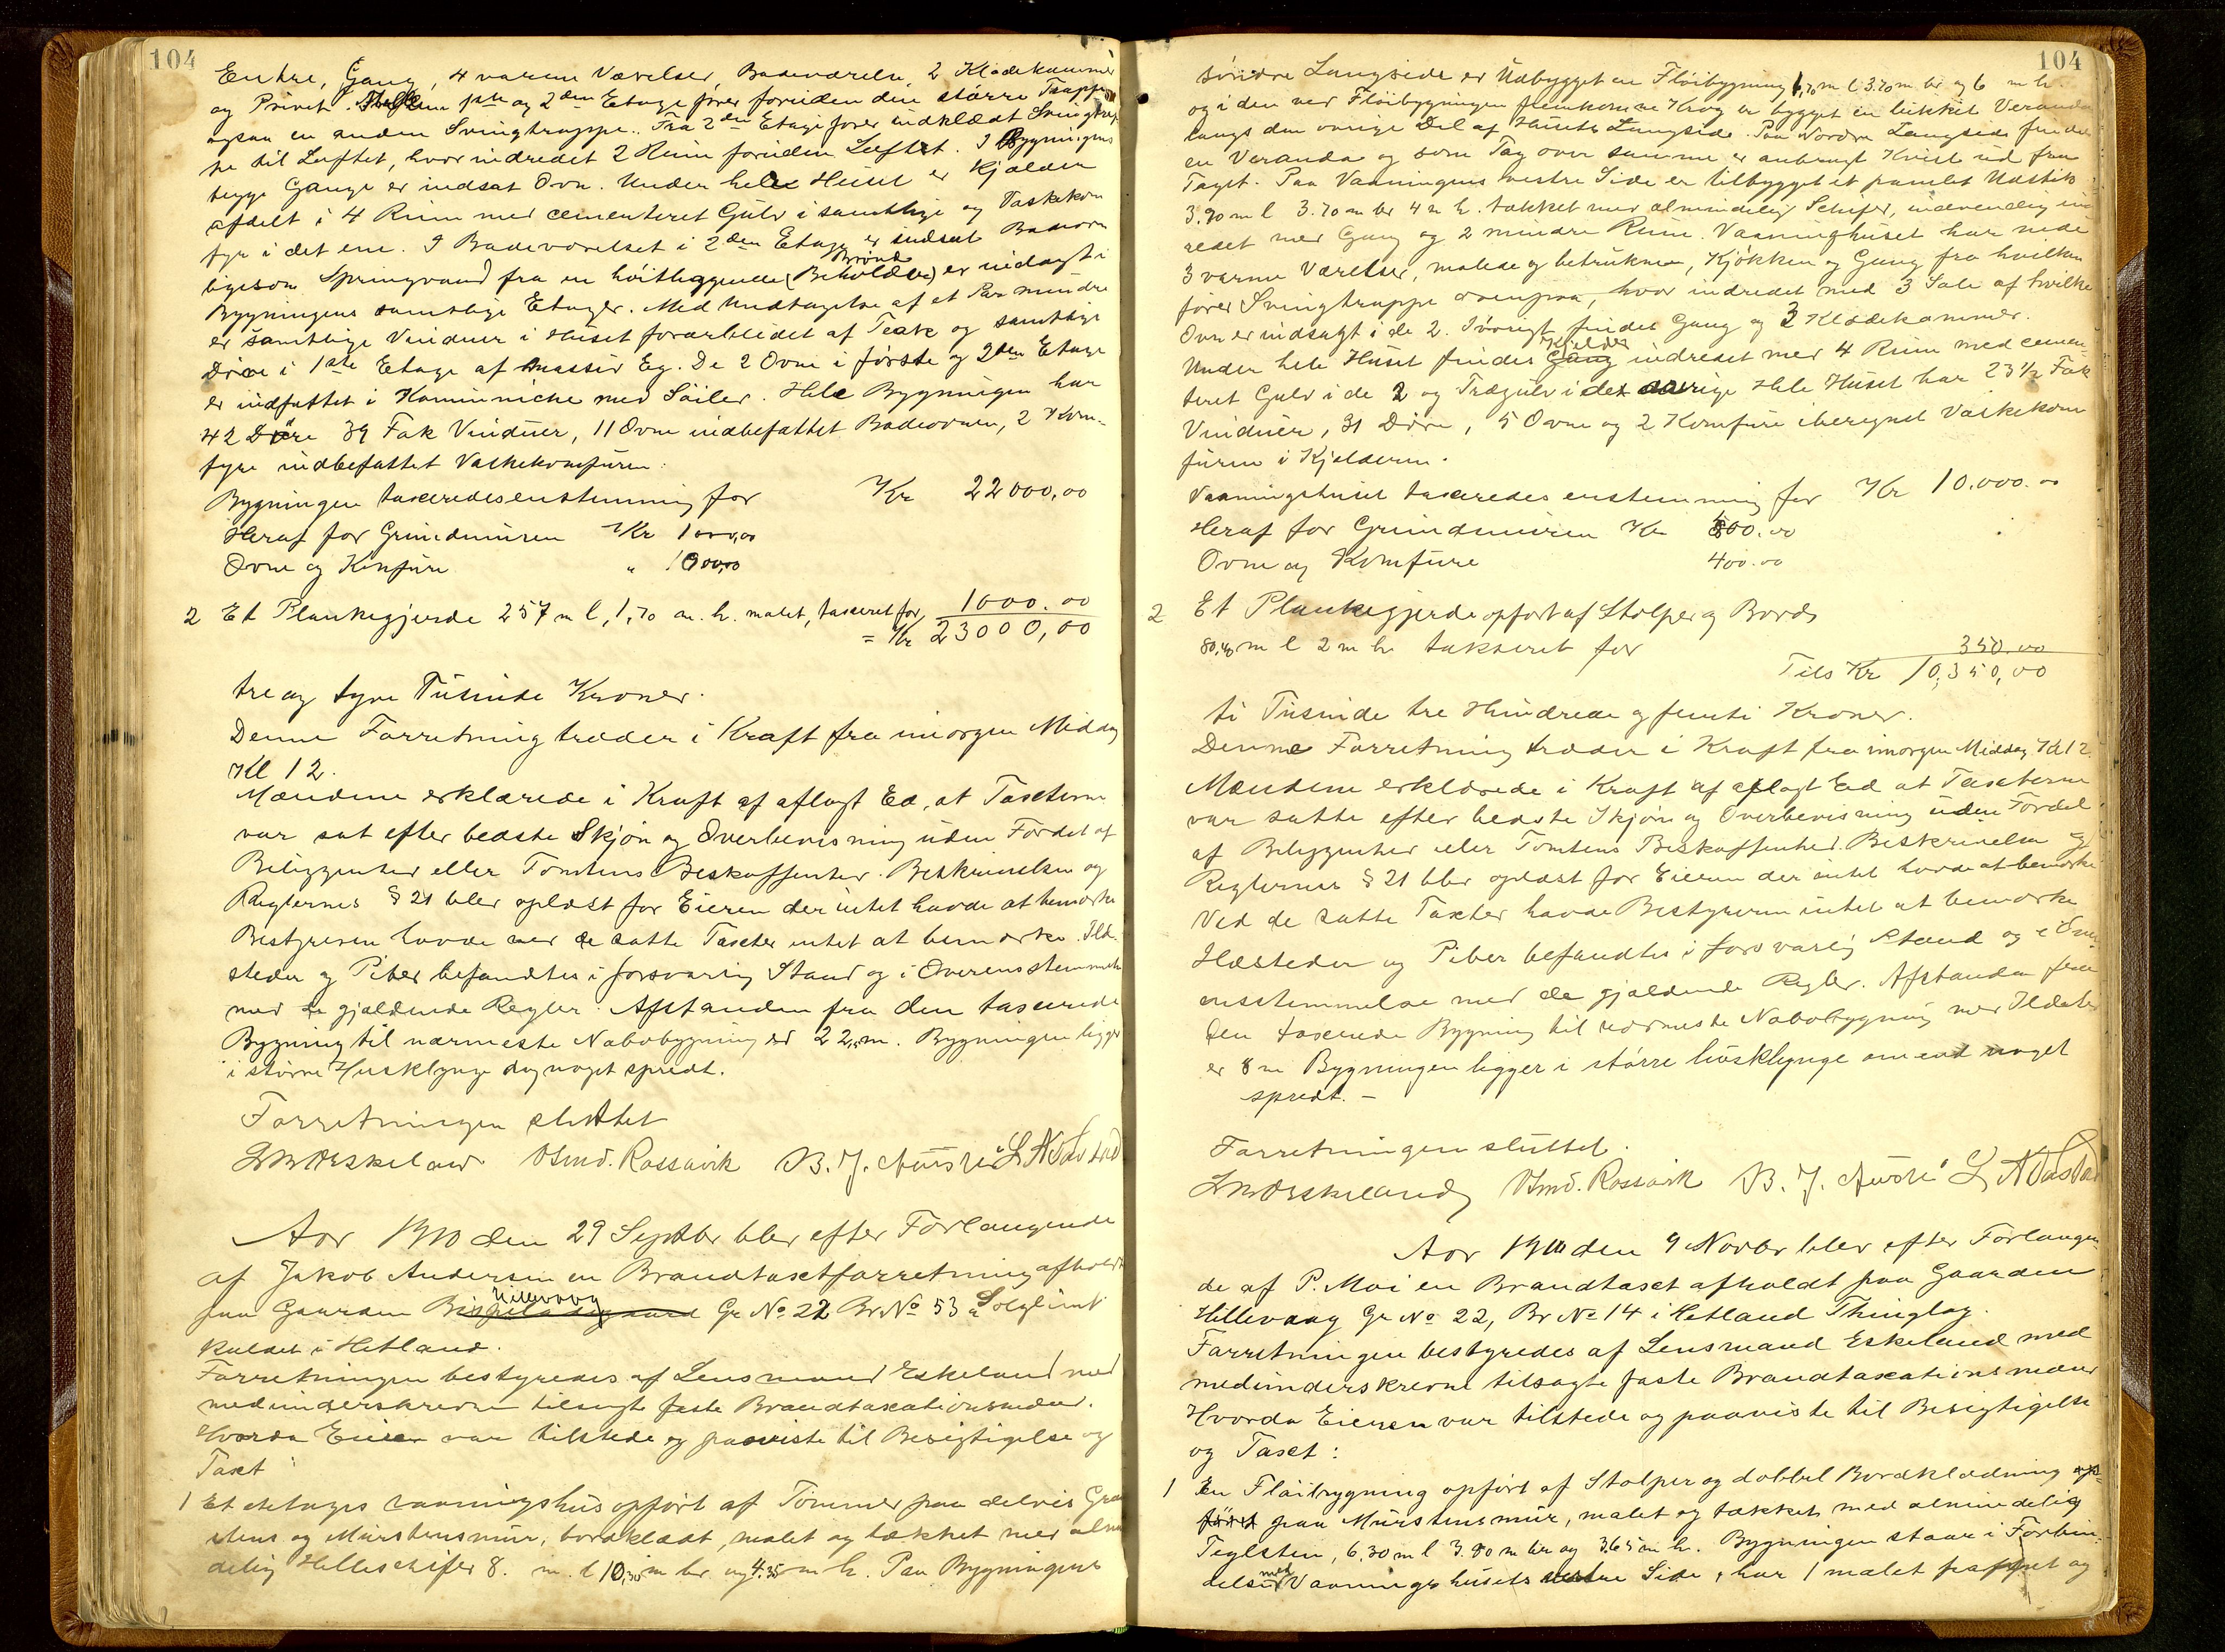 104
Entre, Gang, 4 varme Værelser, Badeværelse, 2 Klædekammer
og Privet. Mellem 1ste og 2den Etage fører foruden den större Trappe
ogsaa en anden Svingtrappe. Fra 2den Etage fører indklædt Svingtrap
pe til Loftet, hvor indredet 2 Rum foruden Loftet. I Bygningens
begge Gange er indsat Ovn. Under hele Huset er Kjælder
afdelt i 4 Rum med cementeret Gulv i samtlige og Vaskekom
fyr i det ene. I Badeværelset i 2den Etage er indsat Badeovn
ligesom Springvand fra en höitliggende (Beholder) Brønd er indlagt i
Bygningens samtlige Etager. Med Undtagelse af et Par mindre
er samtlige Vinduer i Huset forarbeidet af Teak og samtlige
Döre i 1ste Etage af massiv Eg. De 2 Ovne i förste og 2den Etage
er indfattet i Kaminniche med Söiler. Hele Bygningen har
42 Döre 39 Fak Vinduer, 11 Ovne indbefattet Badeovnen, 2 Kom-
fyre indbefattet Vaskekomfuren.
Bygningen taxeredes enstemmig for Kr 22000,00
Heraf for Grundmuren Kr 1000,00
Ovne og Komfure " 1000,00
2 Et Plankegjerde 257 m l, 1,70 m. h. malet, taxeret for 1000.00
= Kr 23000,00
tre og tyve Tusinde Kroner.
Denne Forretning træder i Kraft fra imorgen Middag
Kl 12.
Mændene erklærede i Kraft af aflagt Ed, at Taxterne
var sat efter bedste Skjön og Overbevisning uden Fordel af
Beliggenhed eller Tomtens Beskaffenhed. Beskrivelsen og
Reglernes § 21 blev oplæst for Eieren der intet havde at bemærke
Bestyreren havde ved de satte Taxter intet at bemærke. Ild-
steder og Piber befandtes i forsvarlig Stand og i Overensstemmelse
med de gjældende Regler. Afstanden fra den taxerede
Bygning til nærmeste Nabobygning er 22,5 m. Bygningen ligger
i större Husklynge dog noget spredt.
Forretningen sluttet
Eskeland Osmd. Rossavik B. J. L A Tastad
Aar 1910 den 29 Septbr blev efter Forlangende
af Jakob Andersen en Brandtaxtforretning afholdt
paa Gaarden Hillevaag Gr No 22 Br No 53 Solglimt
kaldet i Hetland.
Forretningen bestyredes af Lensmand Eskeland med
medunderskrevne tilsagte faste Brandtaxationsmænd.
Hvorda Eieren var tilstede og paaviste til Besigtigelse og
Taxt
1 Et etages vaaningshus opfört af Tømmer paa delvis Graa
stens og Murstensmur, bordklædt, malet og tækket med almin
delig Helleschifer 8. m. l 10,30 m br. og 4.35 m h. Paa Bygningens
104
søndre Langside er Udbygget en Flöibygning 1,70 m l 3.70 m br og 6 m h.
og i den ved Flöibygningen fremkomne Krog er bygget en lukket Veranda
langs den övrige Del af Husets Langside. Paa Nordre Langside findes
en Veranda og som Tag over samme er anbragt Kvist ud fra
Taget. Paa Vaaningens vestre Side er tilbygget et panelet Udstik
3.90 m l 3.70 m br 4 m h. tækket med almindelig Schifer, indvendig ind
redet med Gang og 2 mindre Rum. Vaaninghuset har nede
3 varme Værelser, malede og betrukne, Kjökken og Gang fra hvilken
fører Svingtrappe ovenpaa, hvor indredet med 3 Sale af hvilke
Ovn er indsagt i de 2. Iövrigt findes Gang og 3 Klædekammer.
Under hele Huset findes Gang Kjelder indredet med 4 Rum med cemen
teret Gulv i de 2 og Trægulv i det øvrige Hele Huset har 23 1/2 Fak
Vinduer, 31 Döre, 5 Ovne og 2 Komfure iberegnet Vaskekom
furen i Kjelderen.
Vaaningshuset taxeredes enstemmig for Kr 10.000.00
Heraf for Grundmuren Kr 500.00
Ovne og Komfure 400.00
2 Et Plankegjerde opfört af Stolper og Bord
80,40 m l 2 m h takseret for 350.00
Tils Kr 10,350,00
ti Tusinde tre Hundrede og femti Kroner.
Denne Forretning træder i Kraft fra imorgen Middag Kl 12.
Mændene erklærede i Kraft af aflagt Ed at Taxterne
var satte efter bedste Skjön og Overbevisning uden Fordel
af Beliggenhed eller Tomtens Beskaffenhed. Beskrivelsen og
Reglernes § 21 blev oplæst for Eieren der intet havde at bemærke
Ved de satte Taxter havde Bestyreren intet at bemærke
Ildsteder og Piber befandtes i forsvarlig Stand og i Over
ensstemmelse med de gjældende Regler. Afstanden fra
den taxerede Bygning til nærmeste Nabobygning med Ildsted
er 8 m Bygningen ligger i större husklynge om end noget
spredt. -
Forretningen sluttet.
Eskeland Osmd. Rossavik B. J. L A Tastad
Aar 1910 den 9 Novbr blev efter Forlangen
de af P. Moi en Brandtaxt afholdt paa Gaarden
Hillevaag Gr No 22, Br No 14 i Hetland Thinglag.
Forretningen bestyredes af Lensmand Eskeland med
medunderskrevne tilsagte faste Brandtaxationsmænd
Hvorda Eieren var tilstede og paaviste til Besigtigelse
og Taxt:
1 En Flöibygning opfört af Stolper og dobbel Bordklædning op-
fört paa Murstensmur, malet og tækket med almindelig
Teglsten, 6,30 m l 3.90 m br og 3.65 m h. Bygningen staar i Forbin-
delse med Vaaningshusets vestre Side, har 1 malet pappet og